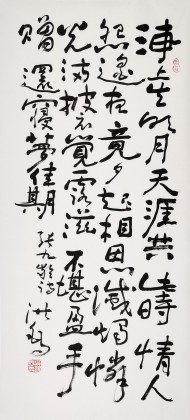 海上生明月天涯共此時情人
怨遙夜竟夕起相思滅燭憐
光滿披衣覺露滋不堪盈手
贈還寢夢佳期 張九齡詩 洪